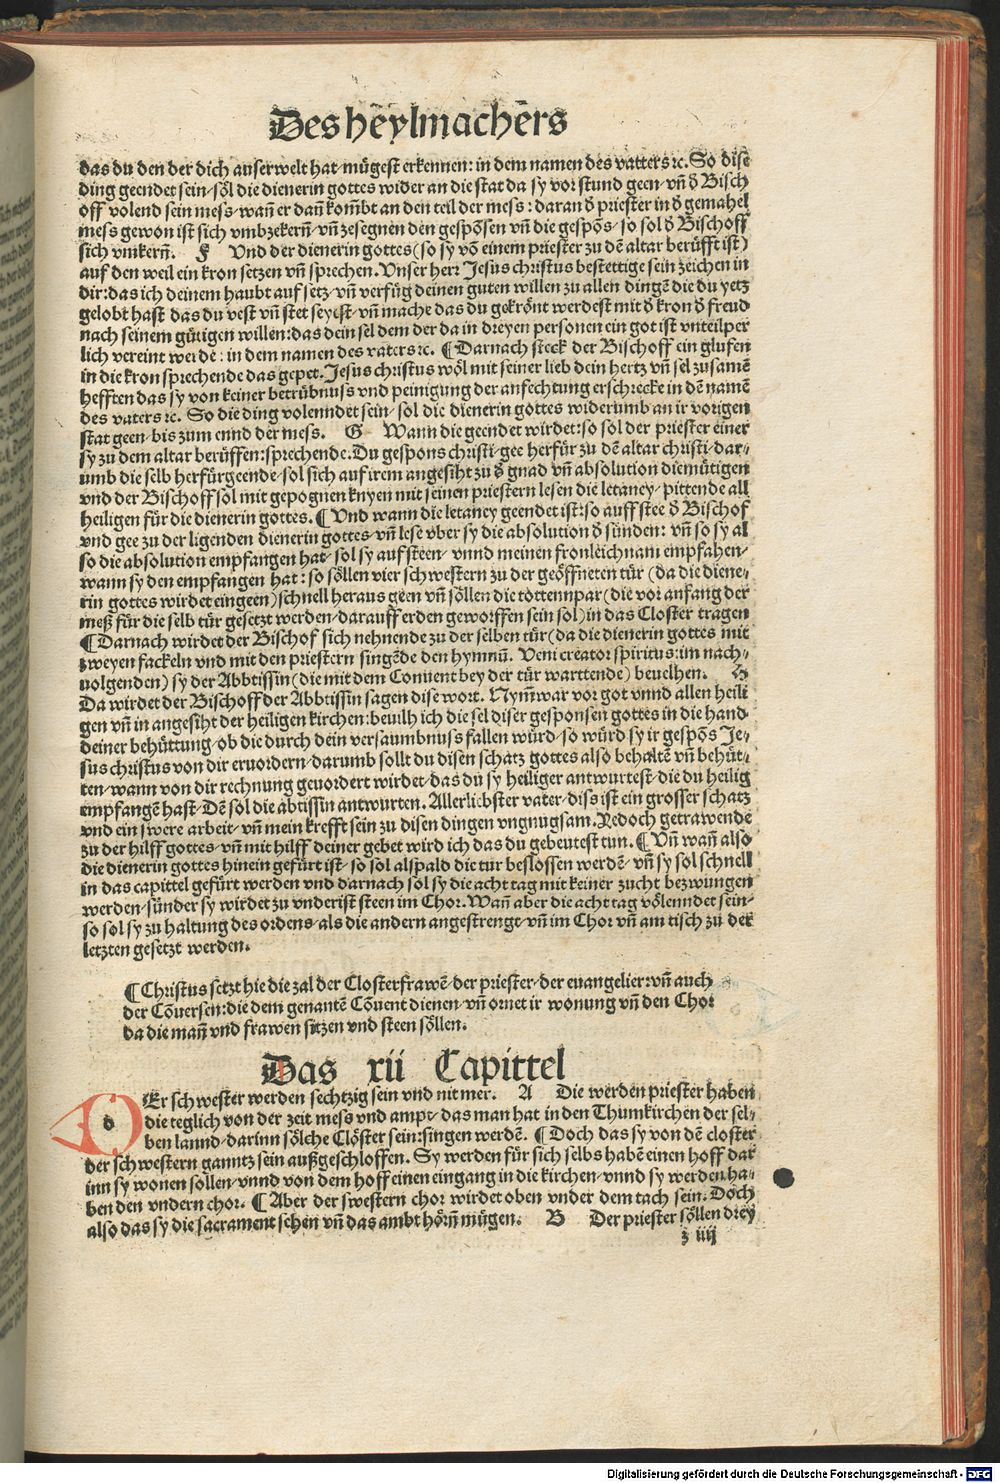 Des heylmachers
das du den der dich auserwelt hat⸗mügest erkennen: in dem namen des vatters ⁊c. So dise
ding geendet sein⸗söl die dienerin gottes wider an die stat da sy vor stund geen⸗vñ ď Bisch
off volend sein mess⸗wañ er dañ kom̃bt an den teil der mess: daran ď priester in ď gemahel
mess gewon ist sich vmbzekerñ⸗vñ zesegnen den gespõsen vñ die gespõs⸗so sol ď Bischoff
sich vmkerñ. F Vnd der dienerin gottes (so sy võ einem priester zu dẽ altar berüfft ist)
auf den weil ein kron setzen vñ sprechen. Vnser herr Jesus christus bestettige sein zeichen in
dir: das ich deinem haubt auf setz⸗vñ verfüg deinen guten willen zu allen dingẽ die du yetz
gelobt hast das du vest vñ stet seyest⸗vñ mache das du gekrönt werdest mit ď kron ď freud
nach seinem gütigen willen: das dein sel dem der da in dreyen personen ein got ist vnteilper
lich vereint werde: in dem namen des vaters ⁊c. ¶ Darnach steck der Bischoff ein glufen
in die kron sprechende das gepet. Jesus christus wöl mit seiner lieb dein hertz vñ sel zusamẽ
hefften das sy von keiner betrübnuss vnd peinigung der anfechtung erschrecke in dẽ namẽ
des vaters ⁊c. So die ding volenndet sein⸗sol die dienerin gottes widerumb an ir vorigen
stat geen⸗bis zum ennd der mess. G Wann die geendet wirdet: so sol der priester einer
sy zu dem altar berüffen: sprechende. Du gespons christi⸗gee herfür zu dẽ altar christi⸗dar⸗
umb die selb herfürgeende⸗sol sich auf irem angesiht zu ď gnad vñ absolution diemütigen
vnd der Bischoff söl mit gepognen knyen mit seinen priestern lesen die letaney⸗pittende all
heiligen für die dienerin gottes. ¶ Vnd wann die letaney geendet ist: so auff stee ď Bischof
vnd gee zu der ligenden dienerin gottes⸗vñ lese vber sy die absolution ď sünden: vñ so sy al
so die absolution empfangen hat⸗sol sy auf steen⸗vnnd meinen fronleichnam empfahen⸗
wann sy den empfangen hat: so söllen vier schwestern zu der geöffneten tür (da die diene⸗
rin gottes wirdet eingeen) schnell heraus geen vñ söllen die tottennpar (die vor anfang der
meß für die selb tür gesetzt werden⸗darauff erden geworffen sein sol) in das Closter tragen
¶ Darnach wirdet der Bischof sich nehnende zu der selben tür (da die dienerin gottes mit
zweyen fackeln vnd mit den priestern singẽde den hymnũ. Veni creator spiritus: im nach⸗
uolgenden) sy der Abbtissin (die mit dem Conuent bey der tür warttende) beuelhen. H
Da wirdet der Bischoff der Abbtissin sagen dise wort. Nym̃war vor got vnnd allen heili
gen vñ in angesiht der heiligen kirchen: beuilh ich die sel diser gesponsen gottes in die hand
deiner behüttung⸗ob die durch dein versaumbnuss fallen würd⸗so würd sy ir gespõs Je⸗
sus christus von dir eruordern⸗darumb sollt du disen schatz gottes also behaltẽ vñ behüt⸗
ten⸗wann von dir rechnung geuordert wirdet⸗das du sy heiliger antwurtest⸗die du heilig
empfangẽ hast⸗Dẽ sol die äbtissin antwurten. Allerliebster vater⸗diss ist ein grosser schatz
vnd ein swere arbeit⸗vñ mein krefft sein zu disen dingen vngnugsam. Yedoch getrawende
zu der hilff gottes⸗vñ mit hilff deiner gebet wird ich das du gebeutest tun. ¶ Vñ wañ also
die dienerin gottes hinein gefürt ist⸗so sol alspald die tur beslossen werdẽ⸗vñ sy sol schnell
in das capittel gefürt werden vnd darnach söl sy die acht tag mit keiner zucht bezwungen
werden⸗sünder sy wirdet zu vnderist steen im Chor. Wañ aber die acht tag völenndet sein⸗
so sol sy zu haltung des ordens⸗als die andern angestrengt⸗vñ im Chor vñ am tisch zu der
letzten gesetzt werden.
¶ Christus setzt hie die zal der Closterfrawẽ⸗der priester⸗der euangelier: vñ auch
der Cõuersen: die dem genantẽ Cõuent dienen⸗vñ ornet ir wonung vñ den Chor
da die mañ vnd frawen sitzen vnd steen söllen.
Das xii Capittel
DEr schwester werden sechtzig sein vnd nit mer. A Die werden priester haben
die teglich von der zeit mess vnd ampt⸗das man hat in den Thumkirchen der sel⸗
ben lannd⸗darinn sölche Clöster sein: singen werdẽ. ¶ Doch das sy von dẽ closter
der schwestern ganntz sein außgeschloffen. Sy werden für sich selbs habẽ einen hoff dar
inn sy wonen sollen⸗vnnd von dem hoff einen eingang in die kirchen⸗vnnd sy werden ha⸗
ben den vndern chor. ¶ Aber der swestern chor wirdet oben vnder dem tach sein. Doch
also das sy die sacrament sehen vñ das ambt hörñ mügen. B Der priester söllen drey
z iiij
Digitalisierung gefördert durch die Deutsche Forschungsgemeinschaft - DFG